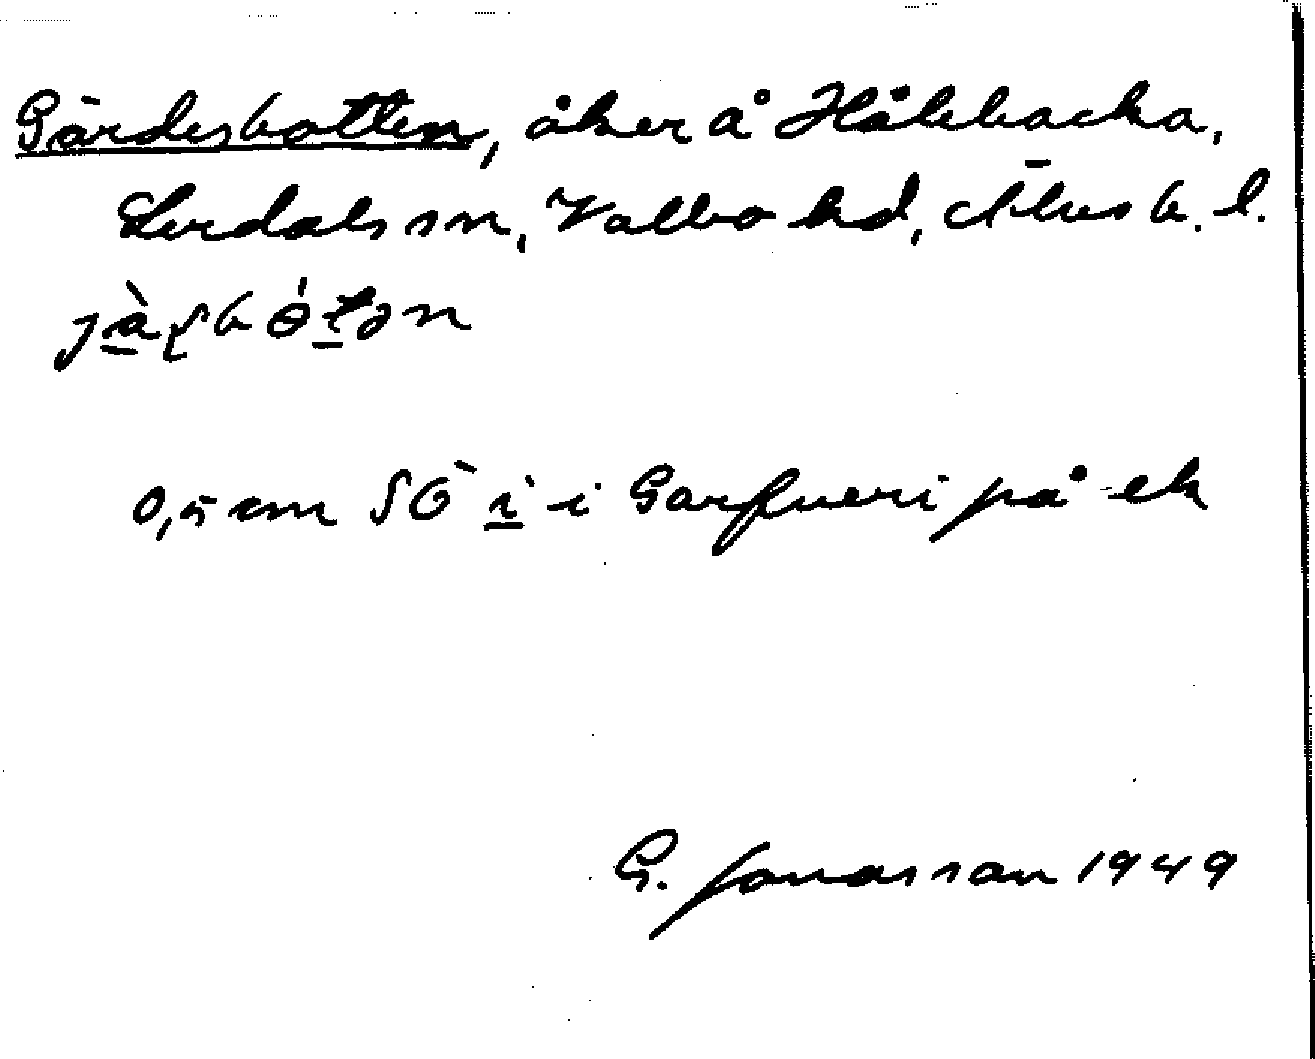 Gärdesbotten, åker å Hålebacka,
Lerdals sn, Valbo hd, Älvsb. l.
0,5 cm SO i i Garfveri på ek
G. Jonasson 1949